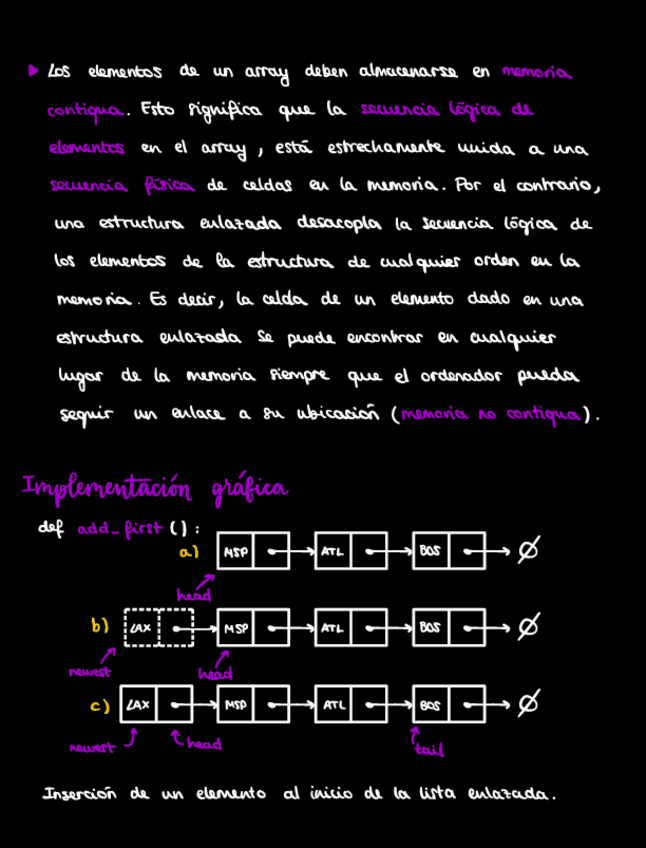 ▶ Los elementos de un array deben almacenarse en memoria
contigua. Esto significa que la secuencia lógica de
elementos en el array, está estrechamente unida a una
secuencia física de celdas en la memoria. Por el contrario,
una estructura enlazada desacopla la secuencia lógica de
los elementos de la estructura de cualquier orden en la
memoria. Es decir, la celda de un elemento dado en una
estructura enlazada se puede encontrar en cualquier
lugar de la memoria siempre que el ordenador pueda
seguir un enlace a su ubicación (memoria no contigua).
Implementación gráfica
def add_first():
a) MSP ATL BOS ∅
head
b) LAX MSP ATL BOS ∅
newest head
c) LAX MSP ATL BOS ∅
newest head tail
Inserción de un elemento al inicio de la lista enlazada.